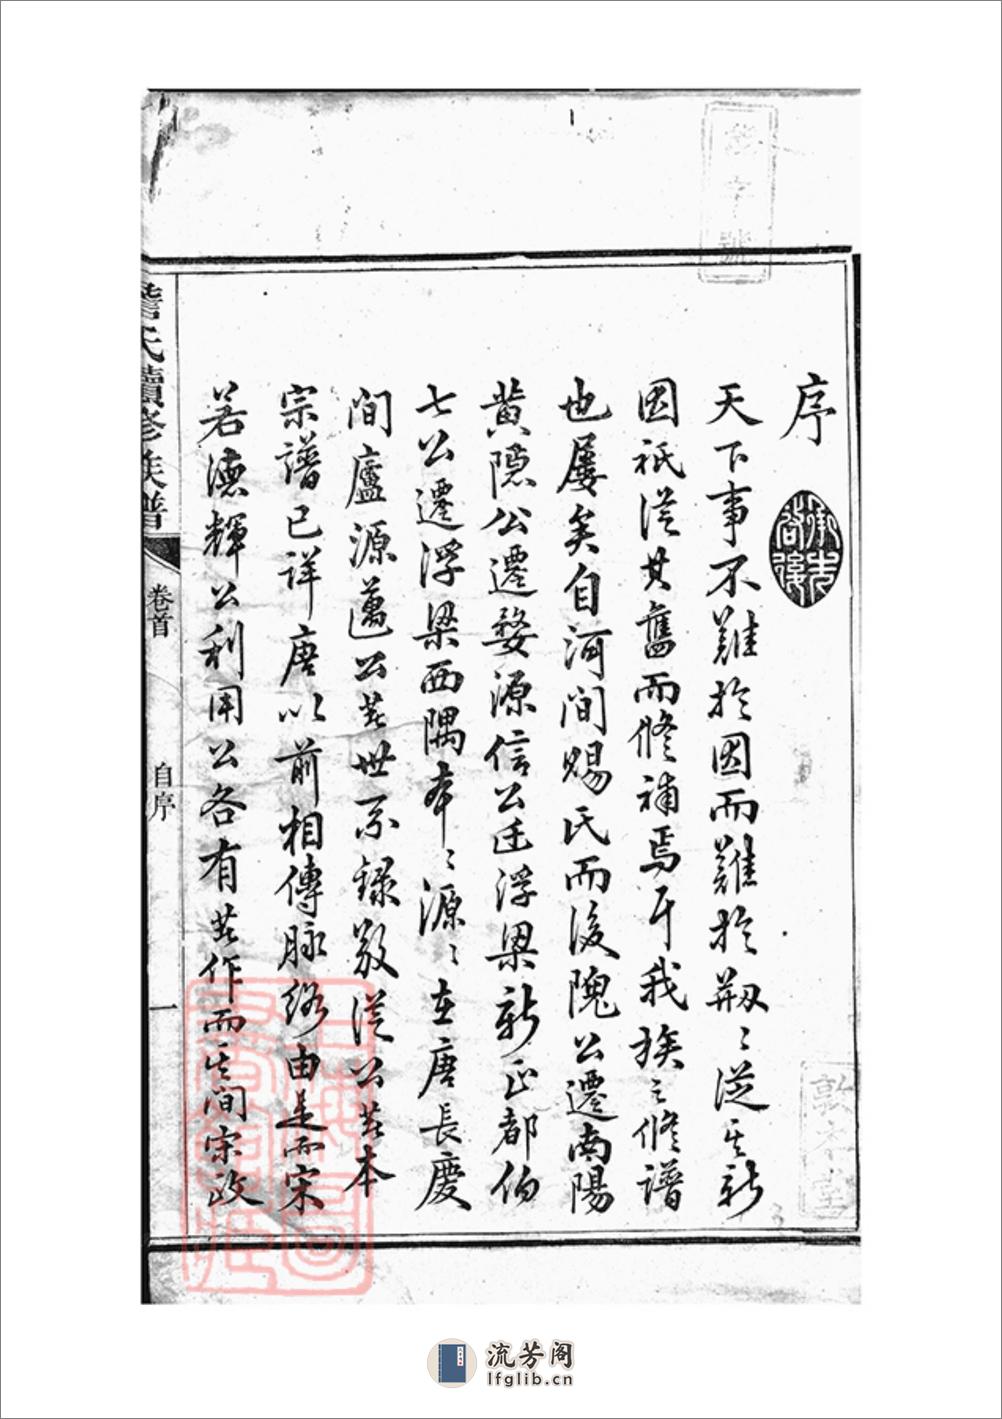 序
承先啟後
天下事不難於因而難於剏〻從其新
因祇從其舊而修補焉耳我族之修譜
也屢矣自河間賜氏而後隗公遷南陽
黄隱公遷婺源信公迁浮梁新正都伯
七公遷浮梁西隅本〻源〻在唐長慶
間廬源邁公其世系錄敬從公其本
宗譜已詳唐以前相傳脉絡由是而宋
若德輝公利用公各有其作而其間宋政
詹氏續修族譜
卷首
自序
一
字號
敦本堂
流芳阁
lfglib.cn